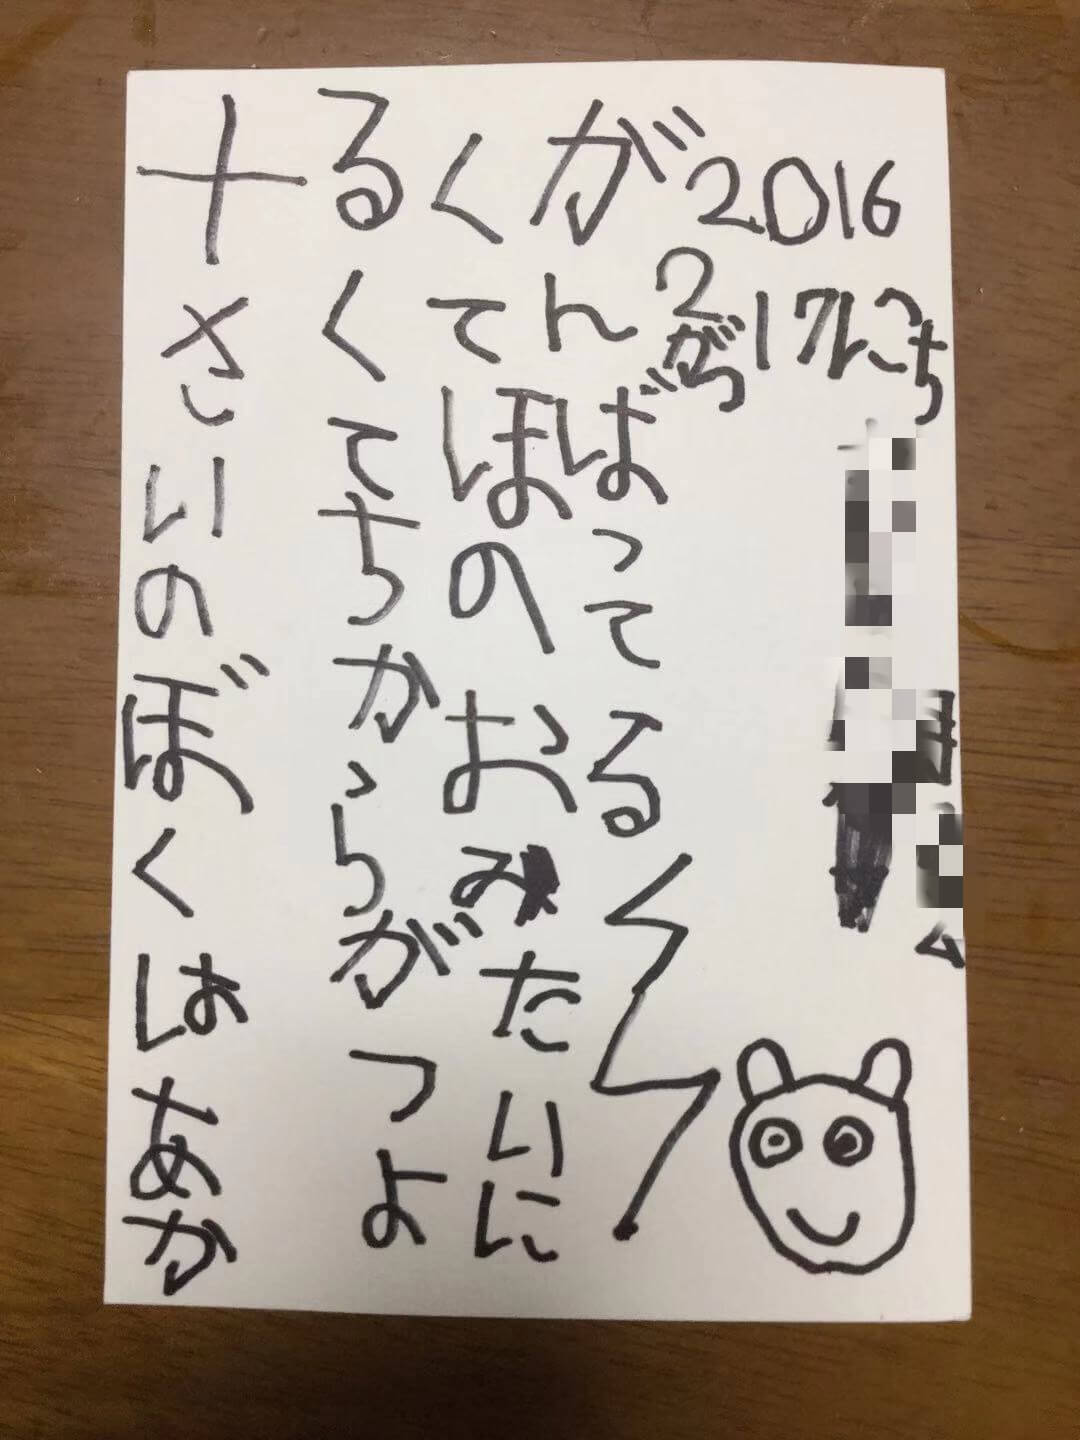 十さいのぼくはあか
るくてちからがつよ
くてほのおみたいに
がんばってる
2016
2がつ17にち